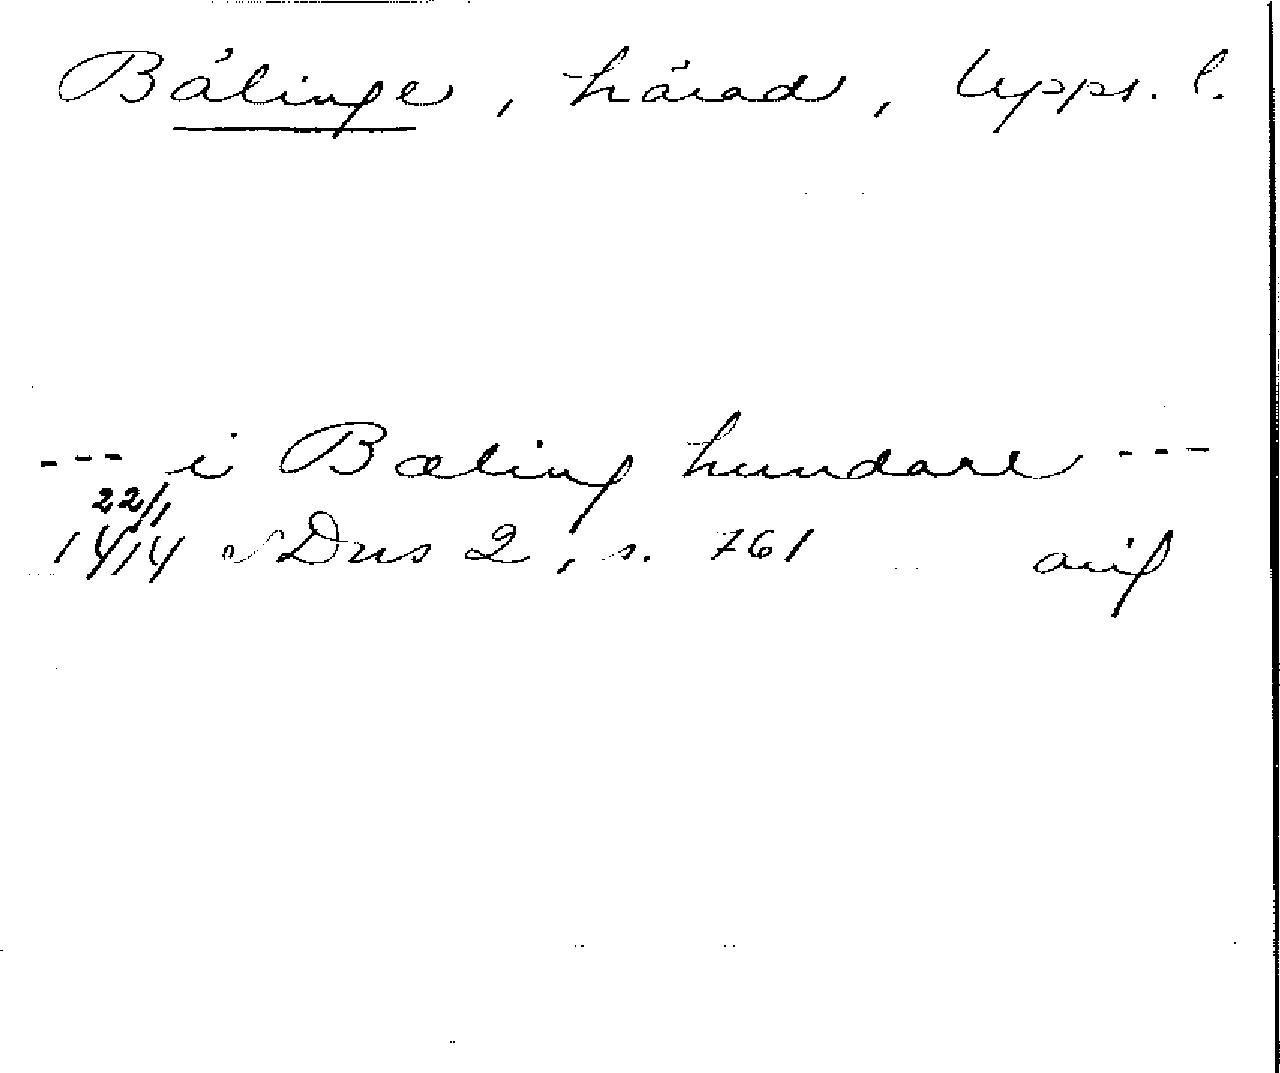 Bälinge, härad, Upps. l.
--- i Bæling hundare ---
22/1
1414 SDns 2, s. 761 avs